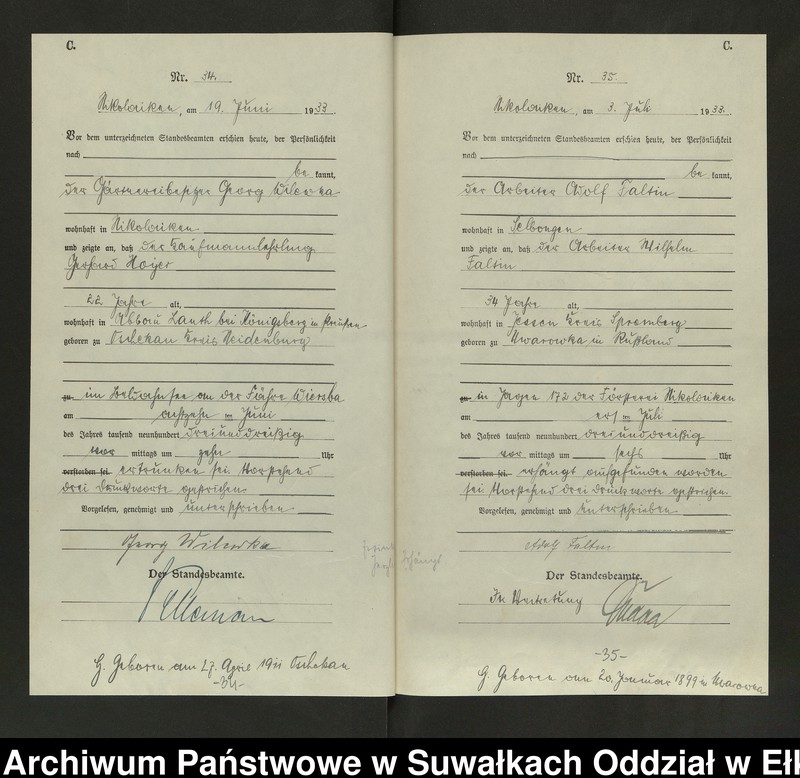 C.
Nr. 34.
Nikolaiken, am 19. Juni 1933.
Vor dem unterzeichneten Standesbeamten erschien heute, der Persönlichkeit
nach
be kannt,
der Gärtnereibesitzer Georg Wilewka
wohnhaft in Nikolaiken
und zeigte an, daß der Kaufmannlehrling
Gerhard Hoyer
22 Jahre alt,
wohnhaft in Abbau Lauth bei Königsberg in Preußen
geboren zu Oschekau Kreis Neidenburg
zu im Beldahnsee an der Fähre Wiersba
am achtzehn im Juni
des Jahres tausend neunhundert dreiunddreißig
vor mittags um zehn Uhr
verstorben sei. ertrunken sei Vorstehend
drei Druckworte gestrichen.
Vorgelesen, genehmigt und unterschrieben
Georg Wilewka
Der Standesbeamte.
G. Geboren am 27. April 1911 Oschekau
-34-
C.
Nr. 35.
Nikolaiken, am 3. Juli 1933.
Vor dem unterzeichneten Standesbeamten erschien heute, der Persönlichkeit
nach
be kannt,
der Arbeiter Adolf Faltin
wohnhaft in Selbongen
und zeigte an, daß der Arbeiter Wilhelm
Faltin
34 Jahre alt,
wohnhaft in Jessen Kreis Spremberg
geboren zu Uwarowka in Rußland
zu in Jagen 172 der Försterei Nikolaiken
am ers im Juli
des Jahres tausend neunhundert dreiunddreißig
vor mittags um sechs Uhr
verstorben sei. erhängt aufgefunden worden
sei Vorstehend drei Druckworte gestrichen.
Vorgelesen, genehmigt und unterschrieben
Adolf Faltin
Der Standesbeamte.
In Vertretung
-35-
G. Geboren am 20. Januar 1899 in Uwarowka
Archiwum Państwowe w Suwałkach Oddział w Ełk